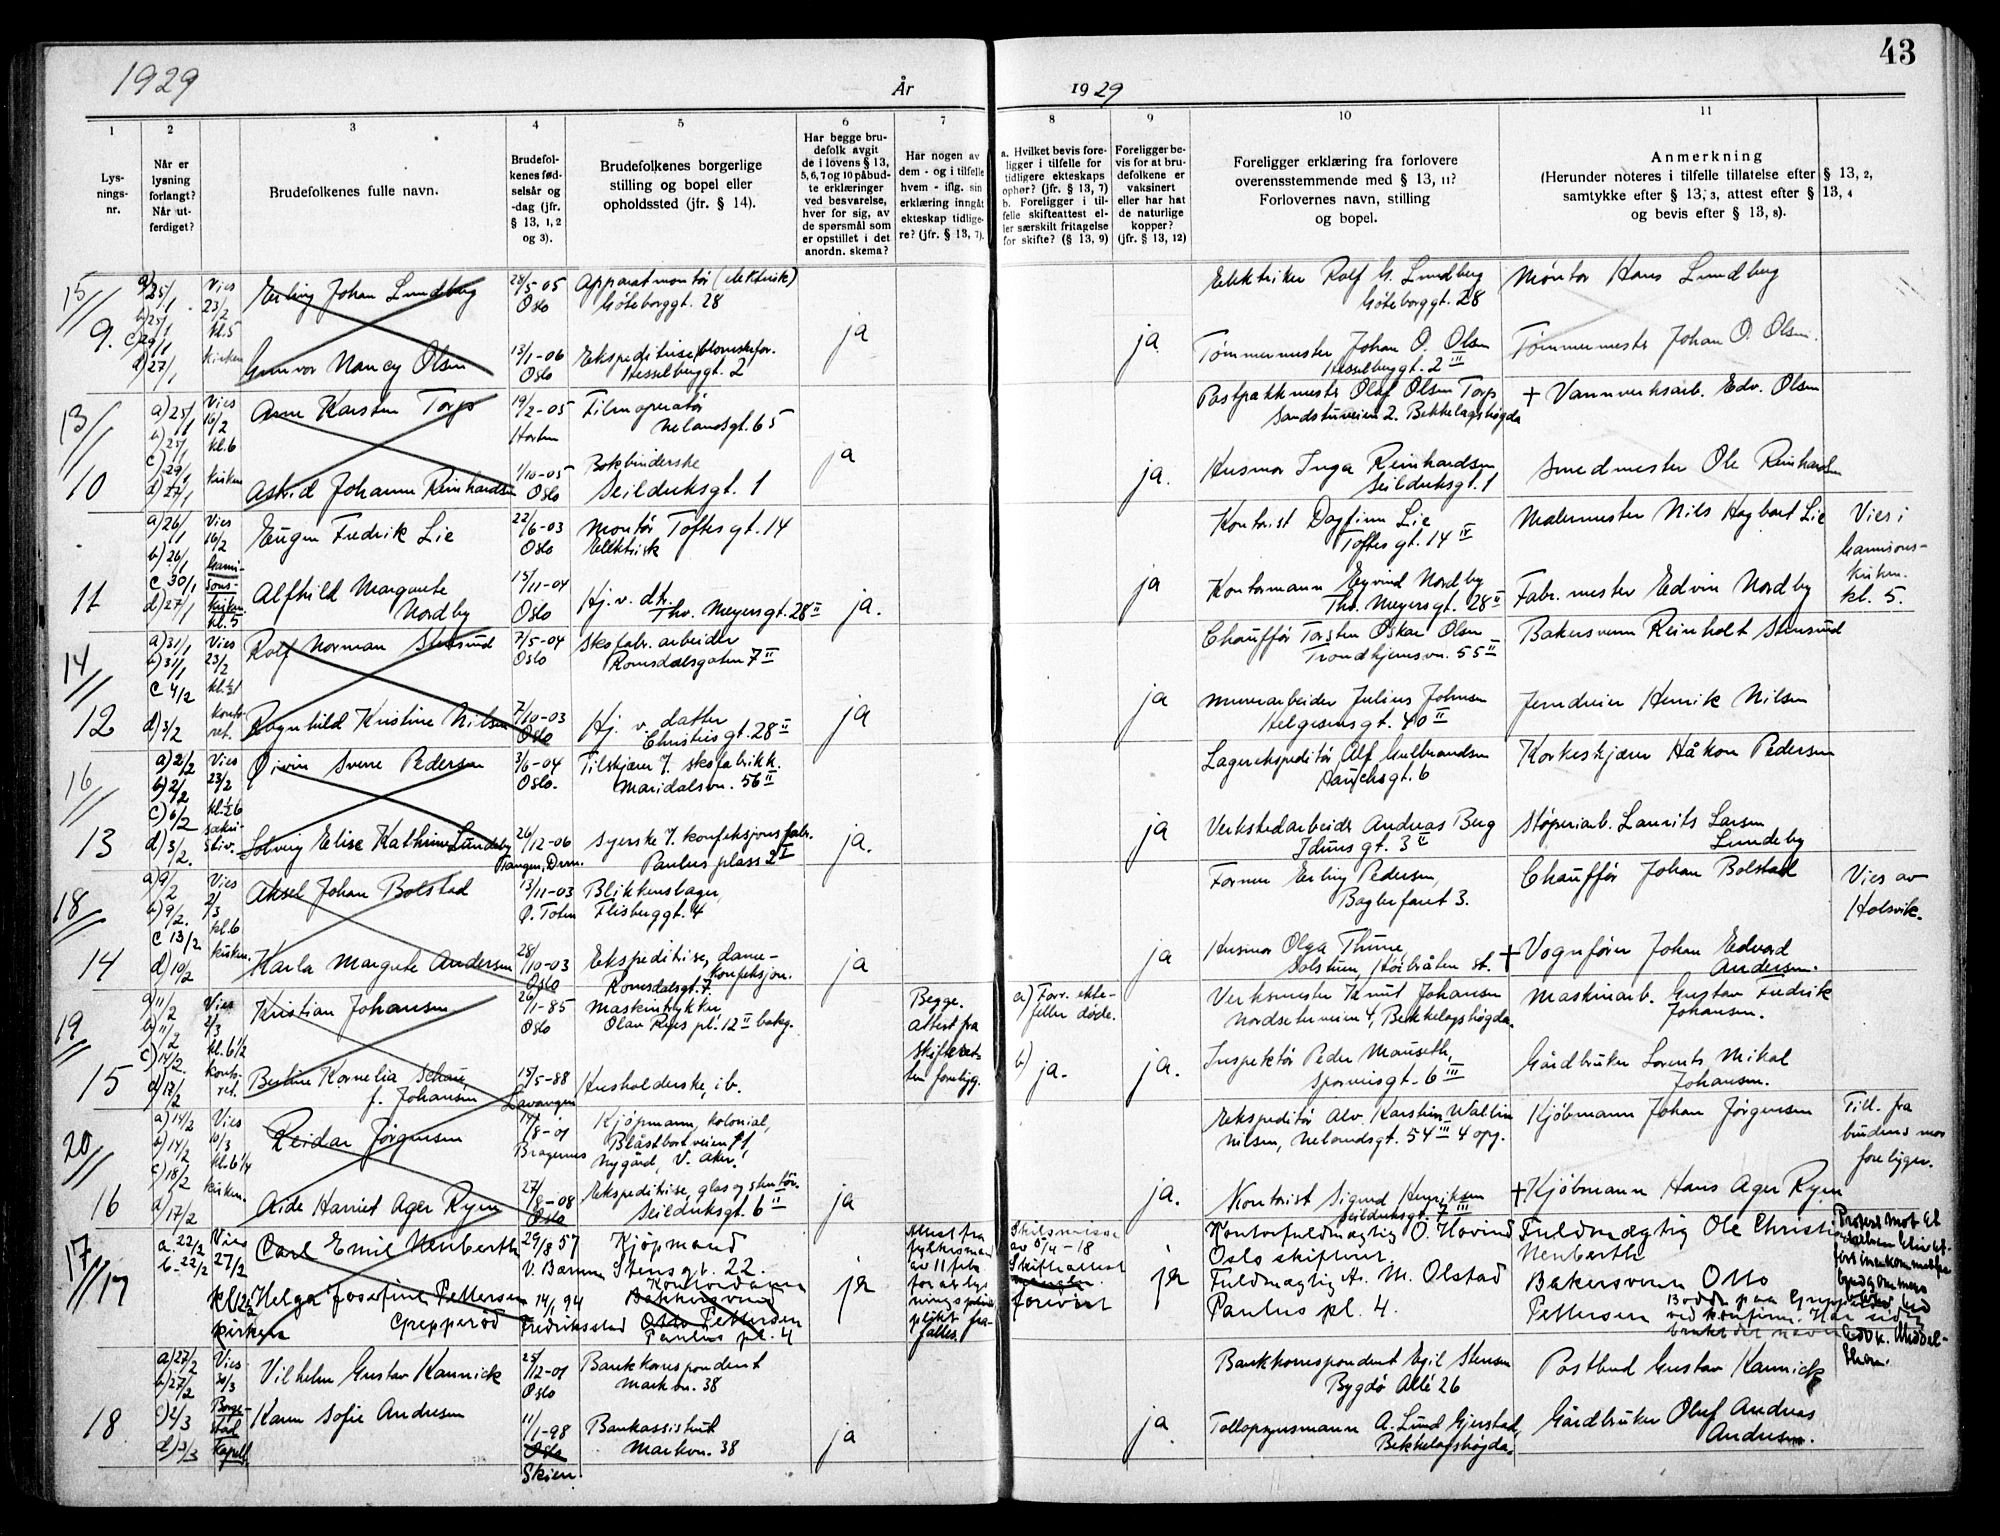 1929
År
1929
43
1
2
3
4
5
6
7
8
9
10
11
Lys-
nings-
nr.
Når er
lysning
forlangt?
Når ut-
ferdiget?
Brudefolkenes fulle navn.
Brudefol-
kenes fød-
selsår og
-dag (jfr.
§ 13, 1, 2
og 3).
Brudefolkenes borgerlige
stilling og bopel eller
opholdssted (jfr. § 14).
Har begge bru-
defolk avgit
de i lovens § 13,
5, 6, 7 og 10 påbud-
te erklæringer
ved besvarelse,
hver for sig, av
de spørsmål som
er opstillet i det
anordn. skema?
Har nogen av
dem - og i tilfelle
hvem - iflg. sin
erklæring inngåt
ekteskap tidlige-
re? (jfr. § 13, 7).
a. Hvilket bevis fore-
ligger i tilfelle for
tidligere ekteskaps
ophør? (jfr. § 13, 7)
b. Foreligger i til-
felle skifteattest el-
ler særskilt fritagelse
for skifte? (§ 13, 9)
Foreligger be-
vis for at bru-
defolkene er
vaksinert
eller har hat
de naturlige
kopper?
(jfr. § 13, 12)
Foreligger erklæring fra forlovere
overensstemmende med § 13, 11?
Forlovernes navn, stilling
og bopel.
Anmerkning
(Herunder noteres i tilfelle tillatelse efter § 13, 2,
samtykke efter § 13, 3, attest efter § 13, 4
og bevis efter § 13, 8).
15
9.
a) 25/1
b) 25/1
c) 29/1
d) 27/1
Vies
23/2
kl. 5
kirken
Erling Johan Lundberg
28/5-05
Oslo
Apparatmontør (elektrisk)
Göteborggt. 28
Elektriker Rolf G. Lundberg
Göteborggt. 28
Montør Hans Lundberg
Gunvor Nancy Olsen
13/1-06
Oslo
Ekspeditrise, blomsterfor.
Hesselberggt. 2
ja
ja.
Tømmermester Johan O. Olsen
Hesselberggt. 2 III
Tømmermester Johan O. Olsen.
13
10
a) 25/1
b) 25/1
c) 29/1
d) 27/1
Vies
16/2
kl. 6
kirken
Arne Karsten Torp
19/2-05
Horten
Filmoperatør
Nelandsgt. 65
Postpakkmester Olaf Olsen Torp
Sandstuveien 2. Bekkelagshøgda
+ Vannverksarb. Edv. Olsen
Astrid Johanne Reinhardsen
1/10-05
Oslo
Bokbinderske
Seilduksgt. 1
ja
ja.
Husmor Inga Reinhardsen
Seilduksgt. 1
Smedmester Ole Reinhardsen
11
a) 26/1
b) 26/1
c 30/1
d) 27/1
Vies
16/2
Garni-
sons-
kirken
kl. 5
Eugen Fredrik Lie
22/6-03
Oslo
Montør Toftesgt. 14
Elektrisk
Kontorist Dagfinn Lie
Toftesgt. 14 IV
Malermester Nils Hagbart Lie
Vies i
Garnisons-
kirken.
kl. 5.
Alfhild Margrete
Nordby
15/11-04
Oslo
Hj. v. dtr.
Thv. Meyersgt. 28 II
ja.
ja
Kontormann Eyvind Nordby
Thv. Meyersgt. 28 II
Fabr. mester Edvin Nordby
14
12
a) 31/1
b) 31/1
c 4/2
d) 3/2
Vies
23/2
kl. ½1
konto-
ret.
Rolf Norman Stensrud
7/5-04
Oslo
Skofabr. arbeider
Romsdalsgaten 7 II
Chauffør Torsten Oskar Olsen
Trondhjemsvn. 55 II
Bakersvenn Reinholt Stensrud
Ragnhild Kristine Nilsen
7/10-03
Oslo
Hj. v. datter
Christiesgt. 28 II
ja
ja
Murerarbeider Julius Johnsen
Helgesensgt. 40 II
Jerndreier Henrik Nilsen
16
13
a) 2/2
b) 2/2
c) 6/2
d) 3/2.
Vies
23/2
kl. ½6
sakri-
stiv.
Øivin Sverre Pedersen
3/6-04
Oslo.
Tilskjærer f. skofabrikk.
Maridalsvn. 56 II
Lagerekspeditør Alf Gulbrandsen
Hauchsgt. 6
Korkeskjærer Håkon Pedersen
Solveig Elise Kathrine Lundeby
26/12-06
Tangen, Drm.
Syerske f. konfeksjonsfabr.
Paulus plass 2 I
ja.
ja
Verkstedarbeider Andreas Berg
Idunsgt. 3 II
Støperiarb. Laurits Larsen
Lundeby
18
14
a) 9/2
b) 9/2.
c 13/2
d) 10/2
Vies
2/3
kl. 6
kirken.
Aksel Johan Bolstad
13/11-03
Ø. Toten
Blikkenslager,
Flisberggt. 4
Former Erling Pedersen,
Baglerfaret 3.
Chauffør Johan Bolstad
Vies av
Holsvik.
Karla Margrete Andersen
28/10-03
Oslo
Ekspeditrise, dame-
konfeksjon.
Romsdalsgt. 7
ja
ja
Husmor Olga Thune,
Solstuen, Hørbråten st.
+ Vognfører Johan Edvard
Andersen.
19
15
a) 11/2
b) 11/2
c) 14/2.
d) 17/2
Vies
2/3
kl. 6½
konto-
ret.
Kristian Johansen
26/1-85
Oslo
Maskintrykker,
Olav Ryes pl. 12 II bakg.
Begge.
Attest fra
skifteret-
ten forelig.
a) Forr. ekte-
feller døde.
b) ja.
Verksmester Knut Johansen
Nordseterveien 4, Bekkelagshøgda.
Maskinarb. Gustav Fredrik
Johansen.
Bertine Kornelia Schau,
f. Johansen
15/5-88
Lavangen
Husholderske, ib.
ja.
Inspektør Peder Mauseth,
Sporveisgt. 6 III
Gårdbruker Lorents Mikal
Johansen.
20
16
a) 14/2
b) 14/2
c) 18/2
d) 17/2
Vies
10/3
kl. 6¼
kirken.
Reidar Jørgensen
14/8-01
Bragernes
Kjøpmann, kolonial,
Blåstbortveien 11
Nygård, V. Aker.
Ekspeditør Alv. Karstein Wallin
Nilsen, Nelandsgt. 54 III 4 opg.
Kjøbmann Johan Jørgensen
Till. fra
brudens mor
foreligger.
Aide Harriet Ager Ryen
27/8-08
Oslo
Ekspeditrise, glas og stentøi.
Seilduksgt. 6 II
ja
ja.
Kontorist Sigurd Henriksen
Seilduksgt. 7 III
+ Kjøbmann Hans Ager Ryen
17
17
a. 22/2
b. 22/2
Vies
27/2
kl 12½
kirken
Carl Emil Nenberth
29/8 57
V. Bærum
Kjøpmand
Stensgt. 22.
Attest fra
fylkesmand
av 11 febr
for at lys-
ningsplikt
fra-
falles
Skilsmisse
av 5/4-18
Skifteattest
forevist
Kontorfuldmægtig O. Hovind
Oslo skifteret.
Fuldmægtig Ole Christian
Nenberth
Helga Josefine Pettersen
Grepperød
14/1 94
Fredriksstad
Kontordame
Bakkersvend
Otto Pettersen
Paulus pl. 4
ja
ja
Fuldmægtig A. M. Olstad
Paulus pl. 4.
Bakersvenn Otto
Pettersen
18
a) 27/2
b) 27/2
c) 2/3
d) 3/3
Vies
30/3
Borge-
stad
Kapell.
Vilhelm Gustav Kannick
25/12-01
Oslo
Bankkorrespondent
Markvn. 38
Bankkorrespondent Egil Stensen
Bygdø Allé 26
Postbud Gustav Kannick
Karen Sofie Andresen
11/1-98
Oslo
Skien
Bankassistent
Markvn. 38
ja
ja.
Tolloppsynsmann A. Lund Gjerstad,
Bekkelagshøgda.
Gårdbruker Oluf Andreas
Andresen.